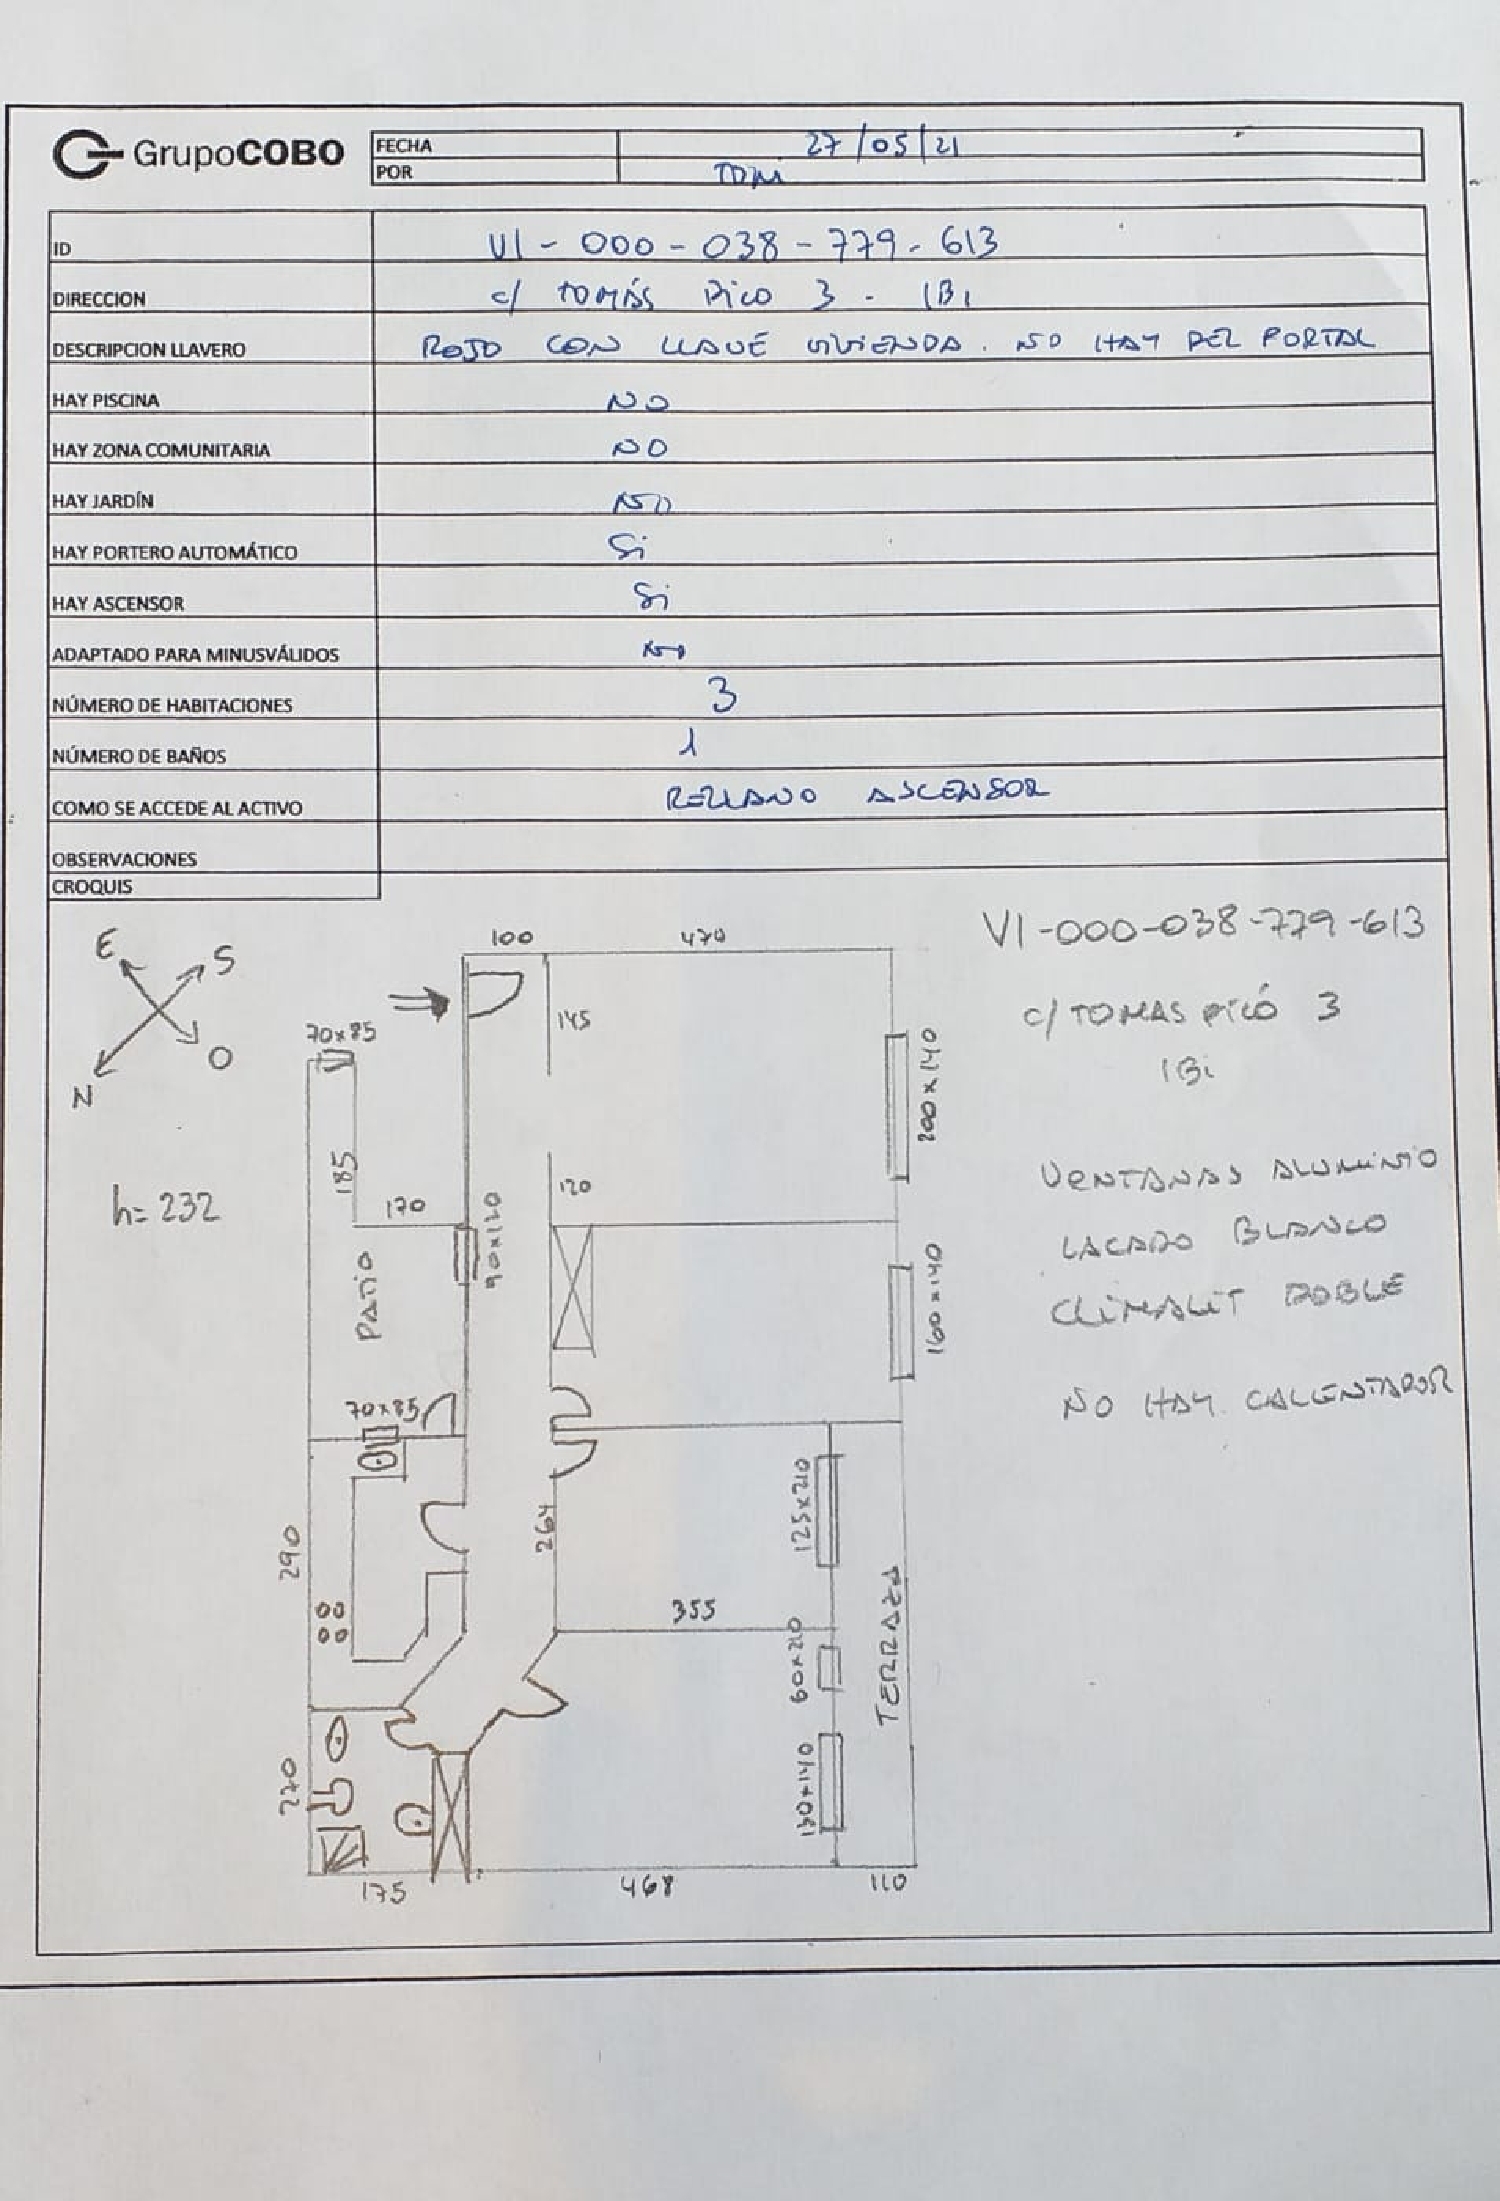 GrupoCOBO
FECHA 27/05/21
POR TDM
ID VI-000-038-779-613
DIRECCION c/ TOMÁS PICO 3 - IBI
DESCRIPCION LLAVERO ROJO CON LLAVE VIVIENDA. NO HAY DEL PORTAL
HAY PISCINA NO
HAY ZONA COMUNITARIA NO
HAY JARDÍN NO
HAY PORTERO AUTOMÁTICO Si
HAY ASCENSOR Si
ADAPTADO PARA MINUSVÁLIDOS NO
NÚMERO DE HABITACIONES 3
NÚMERO DE BAÑOS 1
COMO SE ACCEDE AL ACTIVO RELLANO ASCENSOR
OBSERVACIONES
CROQUIS
VI-000-038-779-613
c/ TOMAS PICÓ 3
IBi
VENTANAS ALUMINIO
LACADO BLANCO
CLIMALIT DOBLE
NO HAY CALENTADOR
E
S
N
O
h=232
100
470
145
70x85
185
170
90x120
120
200x140
160x140
PATIO
70x85
290
264
125x210
355
60x210
TERRAZA
220
130x140
175
468
110